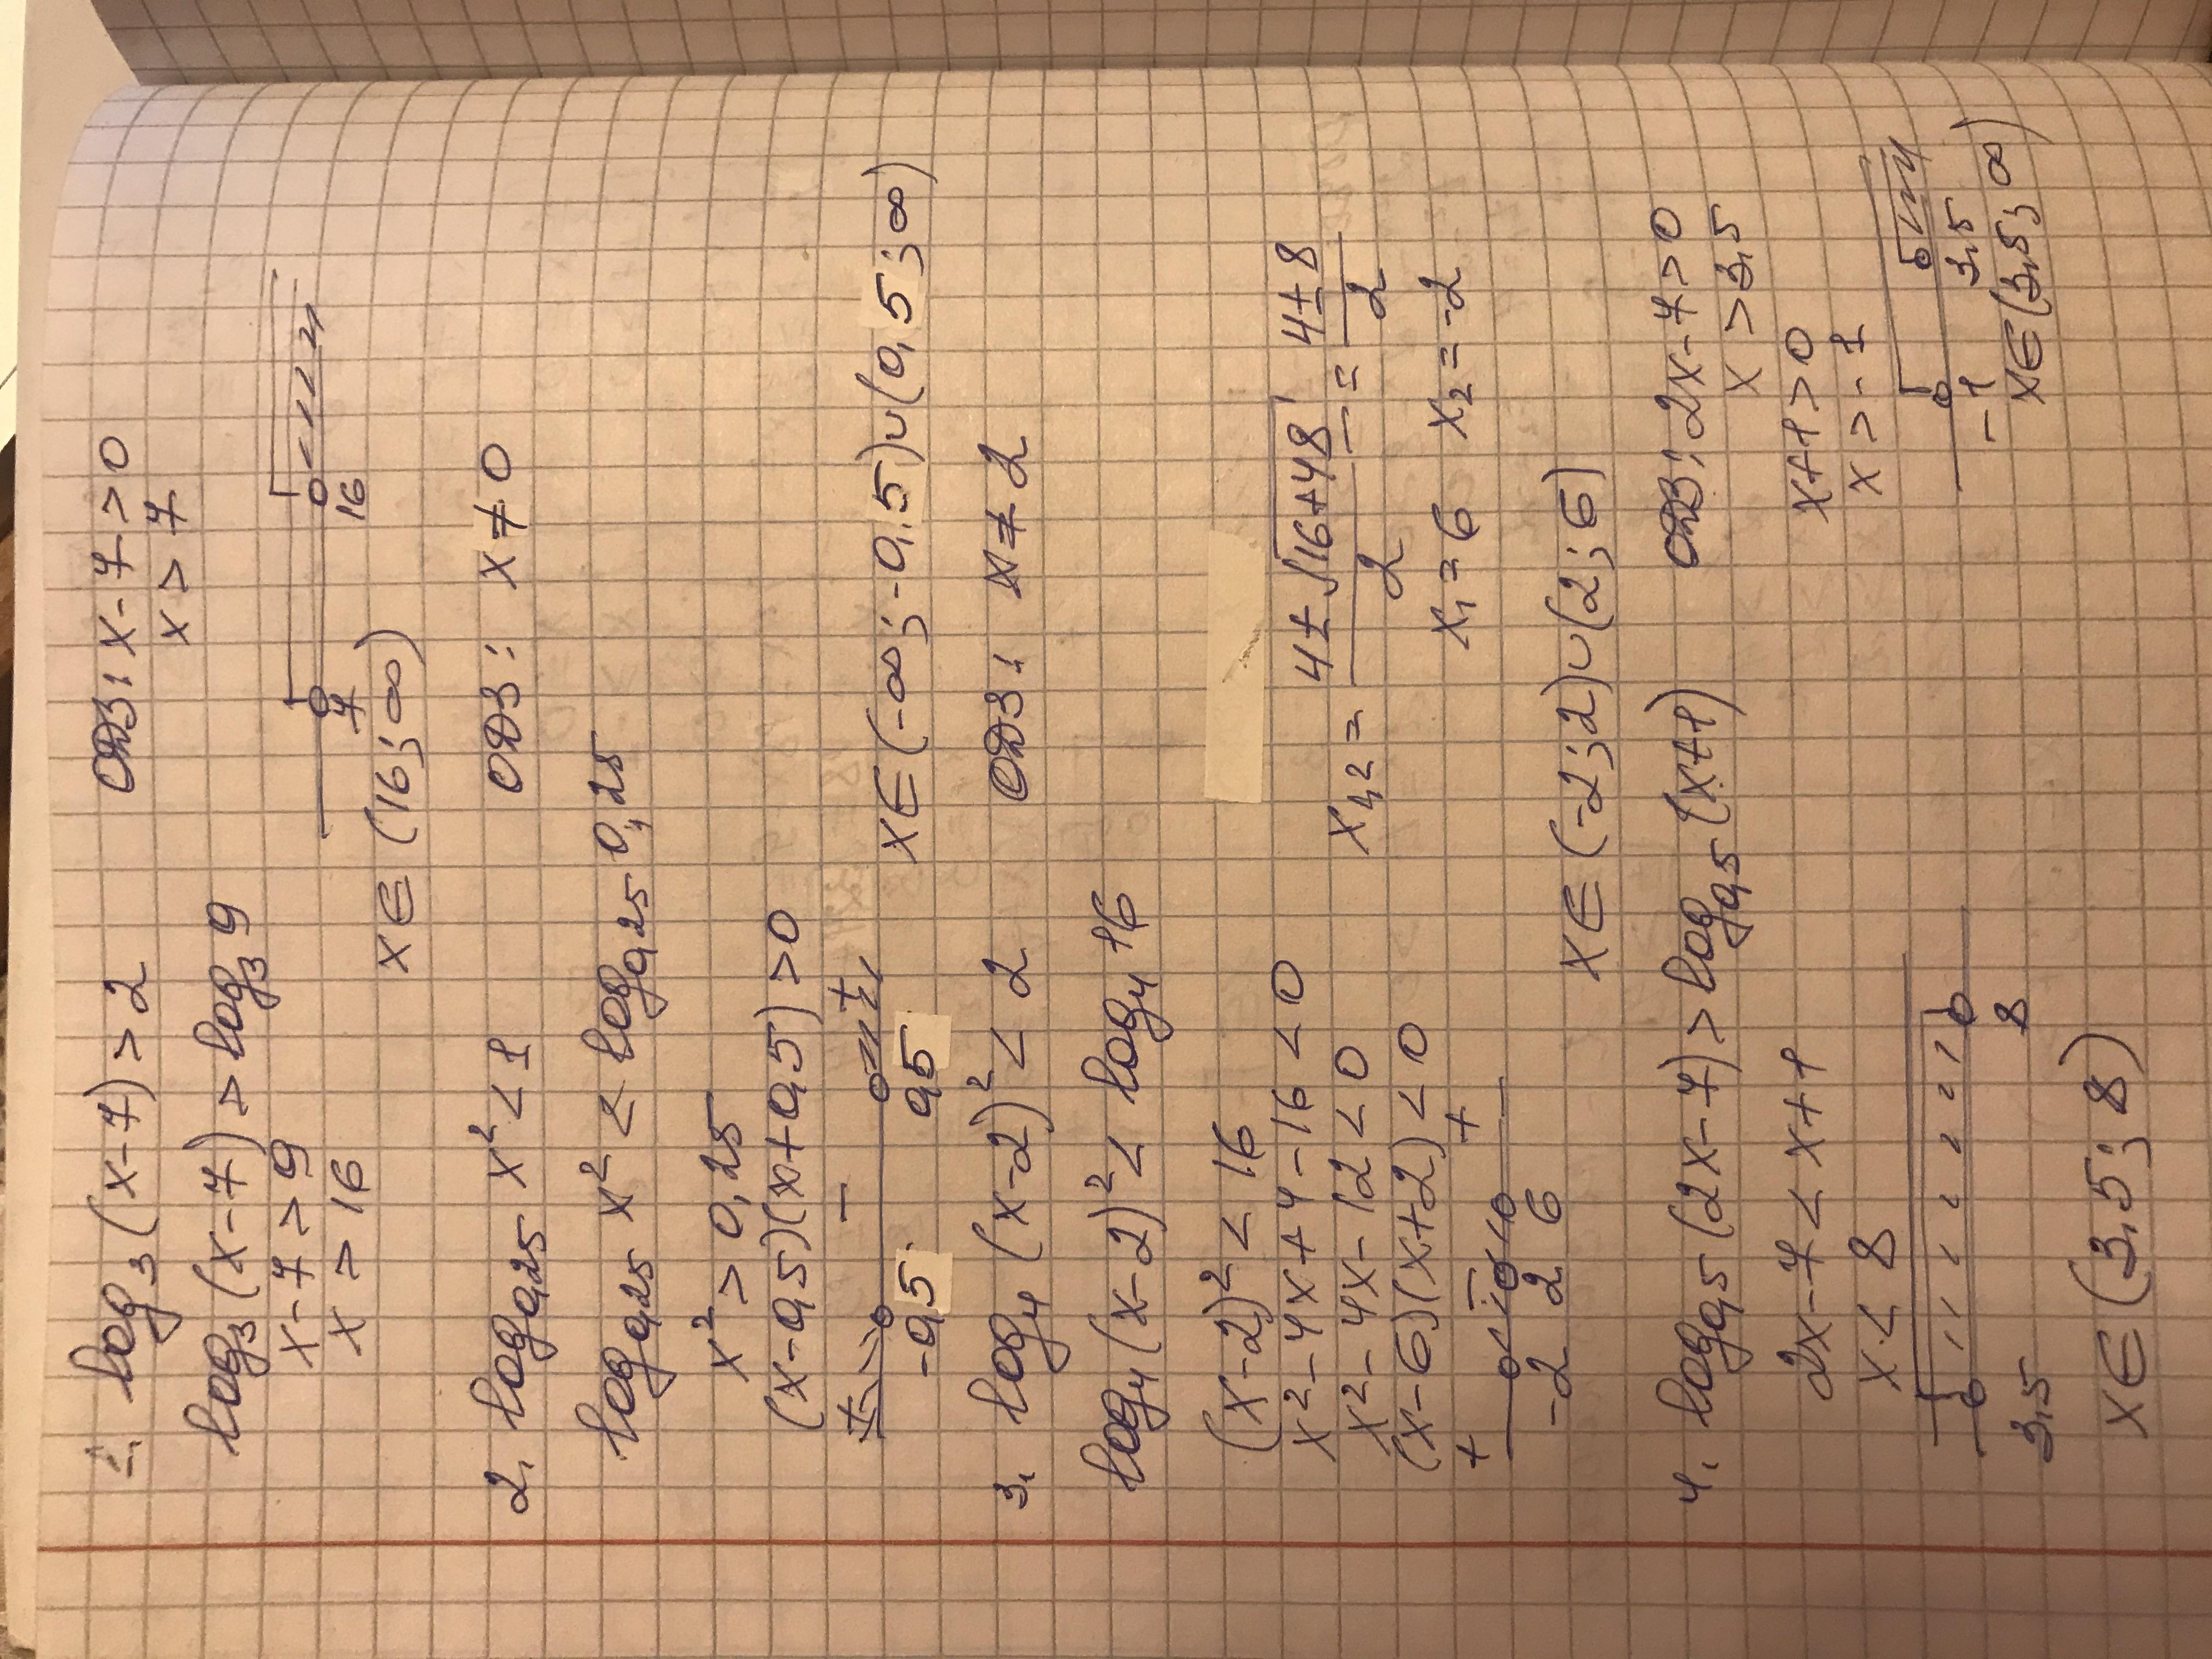 1. log₃(x-7)>2 ОДЗ: x-7>0
log₃(x-7)>log₃9 x>7
x-7>9
x>16 7 16
x∈(16;∞)
2. log₀,₂₅ x²<1 ОДЗ: x≠0
log₀,₂₅ x² < log₀,₂₅ 0,25
x²>0,25
(x-0,5)(x+0,5)>0
+ - +
-0,5 0,5 x∈(-∞;-0,5)∪(0,5;∞)
3. log₄(x-2)²<2 ОДЗ: x≠2
log₄(x-2)²<log₄16
(x-2)²<16
x²-4x+4-16<0
x²-4x-12<0 x₁,₂=(4±√(16+48))/2=(4±8)/2
(x-6)(x+2)<0 x₁=6 x₂=-2
+ - +
-2 2 6 x∈(-2;2)∪(2;6)
4. log₀,₅(2x-7)>log₀,₅(x+1) ОДЗ: 2x-7>0
x>3,5
2x-7<x+1 x+1>0
x<8 x>-1
3,5 8 -1 3,5
x∈(3,5;∞)
x∈(3,5;8)